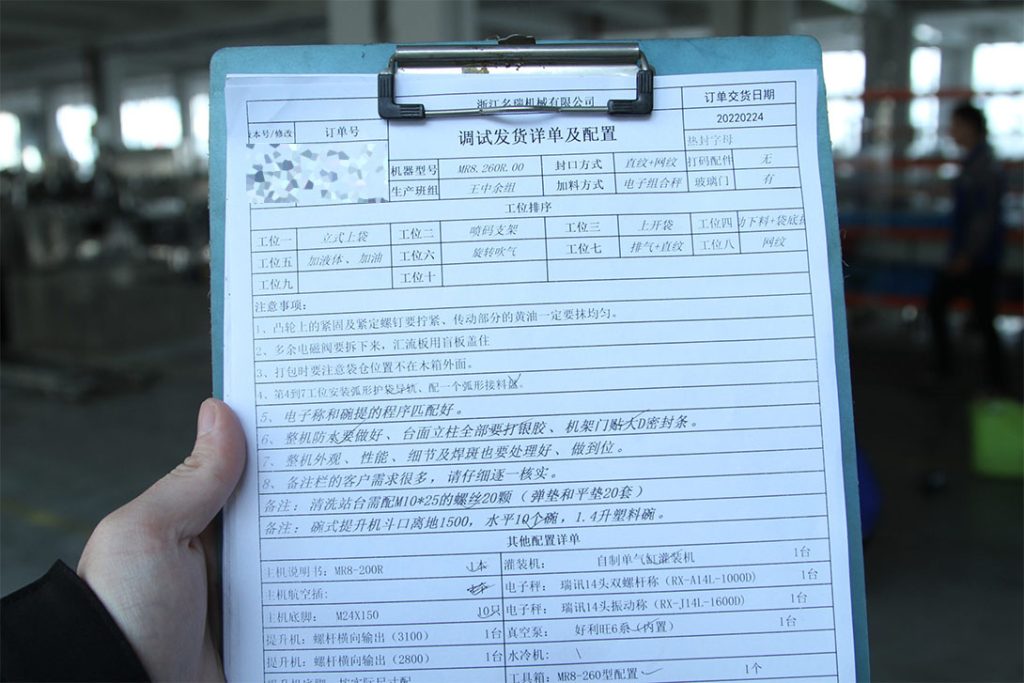 浙江名瑞机械有限公司
订单交货日期
本号/修改 订单号 调试发货详单及配置 20220224
热封字母
机器型号 MR8.260R.00 封口方式 直纹+网纹 打码配件 无
生产班组 王中余组 加料方式 电子组合秤 玻璃门 有
工位排序
工位一 立式上袋 工位二 喷码支架 工位三 上开袋 工位四 下料+袋底
工位五 加液体、加油 工位六 旋转吹气 工位七 排气+直纹 工位八 网纹
工位九 工位十
注意事项:
1、凸轮上的紧固及紧定螺钉要拧紧、传动部分的黄油一定要抹均匀。
2、多余电磁阀要拆下来,汇流板用盲板盖住
3、打包时要注意袋仓位置不在木箱外面。
4、第4到7工位安装弧形护袋导轨、配一个弧形接料盘。
5、电子称和碗提的程序匹配好。
6、整机防水要做好、台面立柱全部要打银胶、机架门贴大D密封条。
7、整机外观、性能、细节及焊斑也要处理好、做到位。
8、备注栏的客户需求很多,请仔细逐一核实。
备注: 清洗站台需配M10*25的螺丝20颗(弹垫和平垫20套)
备注: 碗式提升机斗口离地1500,水平10个碗,1.4升塑料碗。
其他配置详单
主机说明书: MR8-200R 1本 灌装机: 自制单气缸灌装机 1台
主机航空插: 电子秤: 瑞讯14头双螺杆称(RX-A14L-1000D) 1台
主机底脚: M24X150 10只 电子秤: 瑞讯14头振动称(RX-J14L-1600D) 1台
提升机: 螺杆横向输出(3100) 1台 真空泵: 好利旺6系(内置) 1台
提升机: 螺杆横向输出(2800) 1台 水冷机: \
提升机底脚: 按实际尺寸配 工具箱: MR8-260型配置 1个